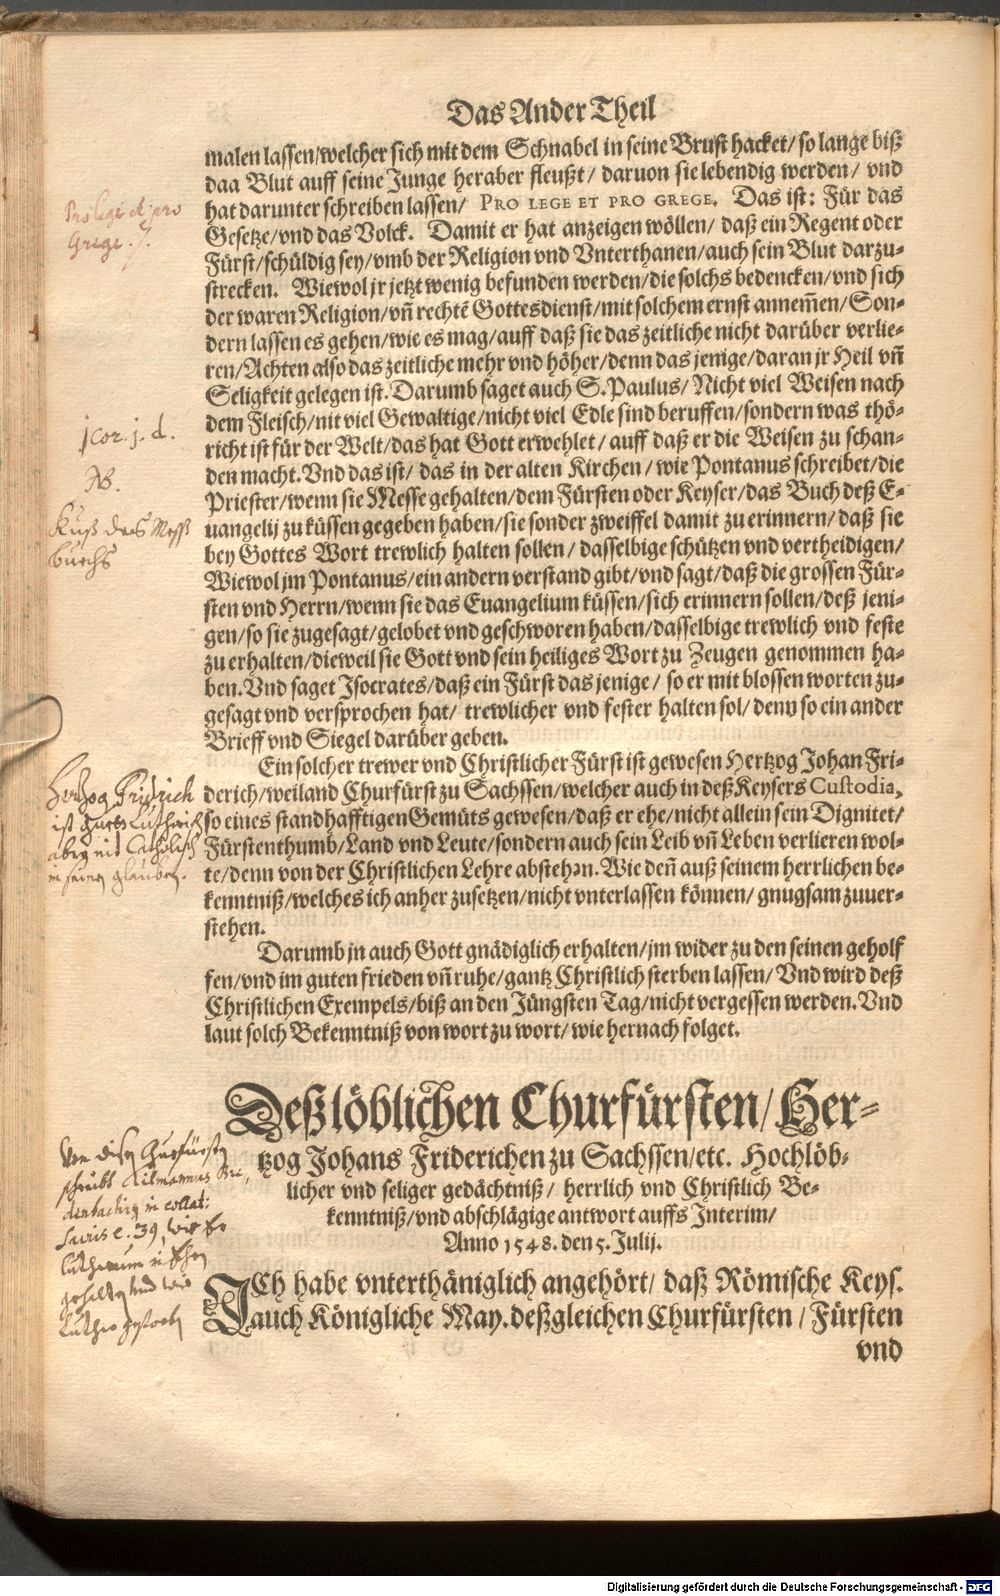 Das Ander Theil
malen lassen/welcher sich mit dem Schnabel in seine Brust hacket/ so lange biß
daa Blut auff seine Junge heraber fleußt/ daruon sie lebendig werden/ vnd
hat darunter schreiben lassen/ PRO LEGE ET PRO GREGE. Das ist: Für das
Gesetze/vnd das Volck. Damit er hat anzeigen wöllen/ daß ein Regent oder
Fürst/schüldig sey/vmb der Religion vnd Vnterthanen/auch sein Blut darzu-
strecken. Wiewol jr jetzt wenig befunden werden/die solchs bedencken/vnd sich
der waren Religion/vñ rechtē Gottesdienst/mit solchem ernst annem̄en/Son-
dern lassen es gehen/wie es mag/auff daß sie das zeitliche nicht darüber verlie-
ren/Achten also das zeitliche mehr vnd höher/denn das jenige/daran jr Heil vñ
Seligkeit gelegen ist. Darumb saget auch S. Paulus/ Nicht viel Weisen nach
dem Fleisch/nit viel Gewaltige/nicht viel Edle sind beruffen/sondern was thö-
richt ist für der Welt/das hat Gott erwehlet/ auff daß er die Weisen zu schan-
den macht. Vnd das ist/ das in der alten Kirchen/ wie Pontanus schreibet/die
Priester/wenn sie Messe gehalten/dem Fürsten oder Keyser/das Buch deß E-
uangelij zu küssen gegeben haben/sie sonder zweiffel damit zu erinnern/ daß sie
bey Gottes Wort trewlich halten sollen/ dasselbige schützen vnd vertheidigen/
Wiewol jm Pontanus/ein andern verstand gibt/vnd sagt/daß die grossen Für-
sten vnd Herrn/wenn sie das Euangelium küssen/sich erinnern sollen/deß jeni-
gen/so sie zugesagt/gelobet vnd geschworen haben/dasselbige trewlich vnd feste
zu erhalten/dieweil sie Gott vnd sein heiliges Wort zu Zeugen genommen ha-
ben. Vnd saget Isocrates/daß ein Fürst das jenige/ so er mit blossen worten zu-
gesagt vnd versprochen hat/ trewlicher vnd fester halten sol/ denn so ein ander
Brieff vnd Siegel darüber geben.
Ein solcher trewer vnd Christlicher Fürst ist gewesen Hertzog Johan Fri-
derich/weiland Churfürst zu Sachssen/welcher auch in deß Keysers Custodia,
so eines standhafftigen Gemüts gewesen/daß er ehe/nicht allein sein Dignitet/
Fürstenthumb/Land vnd Leute/sondern auch sein Leib vñ Leben verlieren wol-
te/denn von der Christlichen Lehre abstehen. Wie deñ auß seinem herrlichen be-
kenntniß/welches ich anher zusetzen/nicht vnterlassen können/ gnugsam zuuer-
stehen.
Darumb jn auch Gott gnädiglich erhalten/jm wider zu den seinen geholf
fen/vnd im guten frieden vñ ruhe/gantz Christlich sterben lassen/ Vnd wird deß
Christlichen Exempels/biß an den Jüngsten Tag/nicht vergessen werden. Vnd
laut solch Bekenntniß von wort zu wort/ wie hernach folget.
Deß löblichen Churfürsten/Her-
tzog Johans Friderichen zu Sachssen/etc. Hochlöb-
licher vnd seliger gedächtniß/ herrlich vnd Christlich Be-
kenntniß/vnd abschlägige antwort auffs Interim/
Anno 1548. den 5. Julij.
ICh habe vnterthäniglich angehört/ daß Römische Keys.
auch Königliche May. deßgleichen Churfürsten/ Fürsten
vnd
Pro lege et pro
Grege. /.
1 Cor. 1. d.
NB.
Kuß des Meß
buechs
Hertzog Fridrich
ist guets Lutherisch
aber nit Catholisch
in seinem glauben.
Von disem Churfürsten
schreibt Tilmannus Bre,
denbachig in collat:
Sacris c. 39, wie Er
Lutherum in Ehen
gehalten vnd wie
Luther gestorben
Digitalisierung gefördert durch die Deutsche Forschungsgemeinschaft - DFG